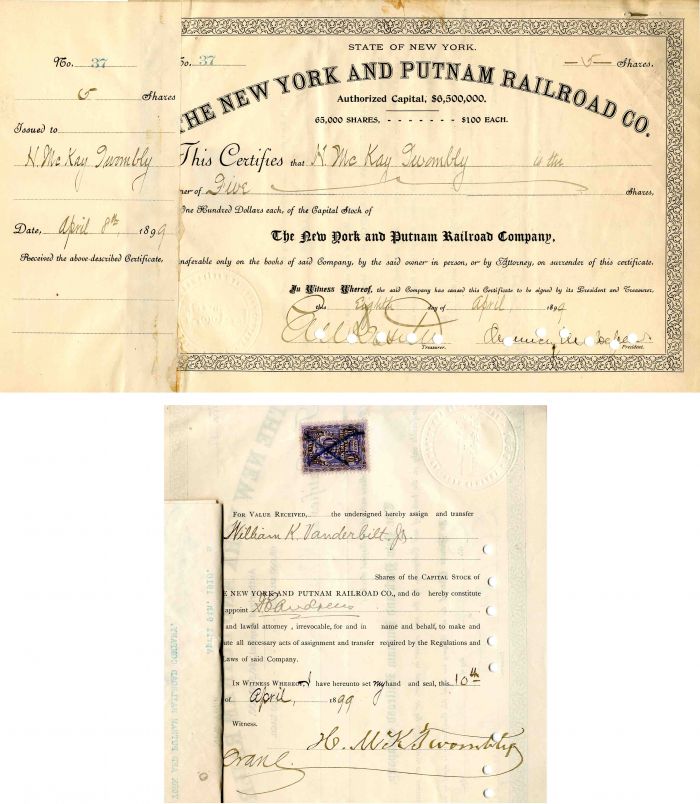 No. 37
5 Shares
Issued to
H. McKay Twombly
Date, April 8th 1899
Received the above described Certificate,
No. 37
STATE OF NEW YORK.
5 Shares.
THE NEW YORK AND PUTNAM RAILROAD CO.
Authorized Capital, $6,500,000.
65,000 SHARES, - - - - - - - $100 EACH.
This Certifies that H. McKay Twombly is the
ner of Five Shares,
One Hundred Dollars each, of the Capital Stock of
The New York and Putnam Railroad Company,
nsferable only on the books of said Company, by the said owner in person, or by Attorney, on surrender of this certificate.
In Witness Whereof, the said Company has caused this Certificate to be signed by its President and Treasurer,
this Eighth day of April, 1899
Treasurer. President.
FOR VALUE RECEIVED, the undersigned hereby assign and transfer
William K. Vanderbilt. Jr.
Shares of the CAPITAL STOCK of
E NEW YORK AND PUTNAM RAILROAD CO., and do hereby constitute
appoint
and lawful attorney, irrevocable, for and in name and behalf, to make and
ute all necessary acts of assignment and transfer required by the Regulations and
Laws of said Company.
IN WITNESS WHEREOF, I have hereunto set my hand and seal, this 10th
of April, 1899
Witness.
H. McK Twombly
Crane.